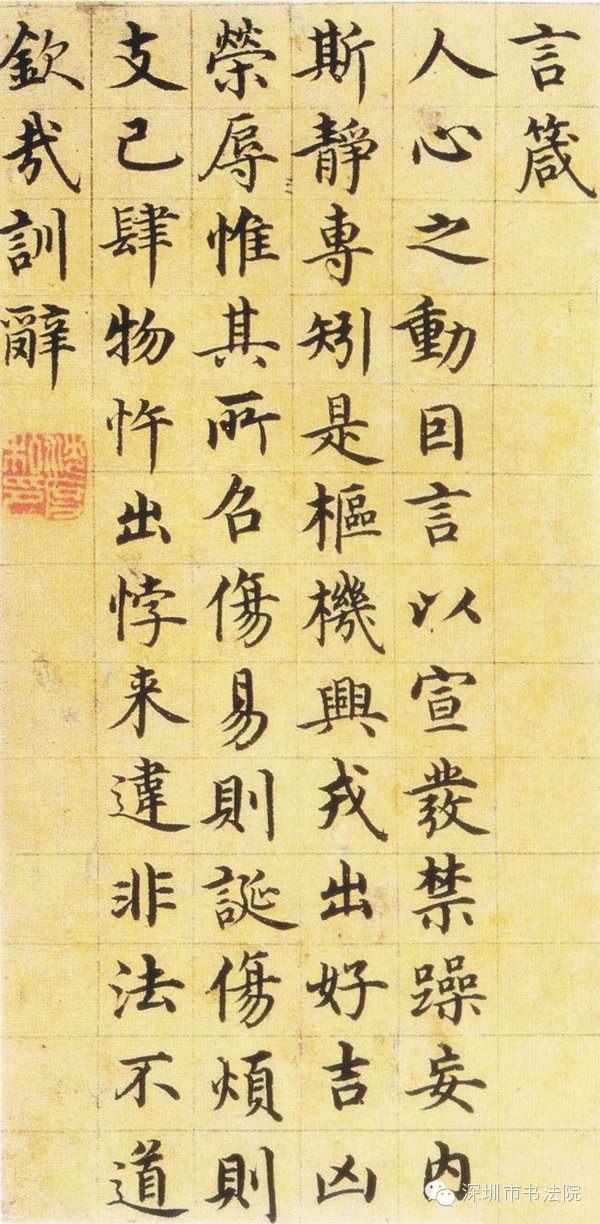 言箴
人心之動因言以宣發禁躁妄内
斯靜專矧是樞機興戎出好吉凶
榮辱惟其所召傷易則誕傷煩則
支己肆物忤出悖来違非法不道
欽哉訓辭
深圳市书法院